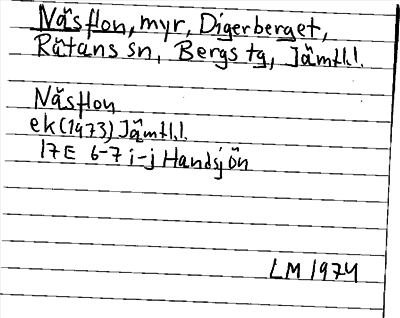 Näsflon, myr, Digerberget,
Rätans sn, Bergs tg, Jämtl.l.
Näsflon
ek(1973) Jämtl.l.
17E 6-7 i-j Handsjön
LM 1974